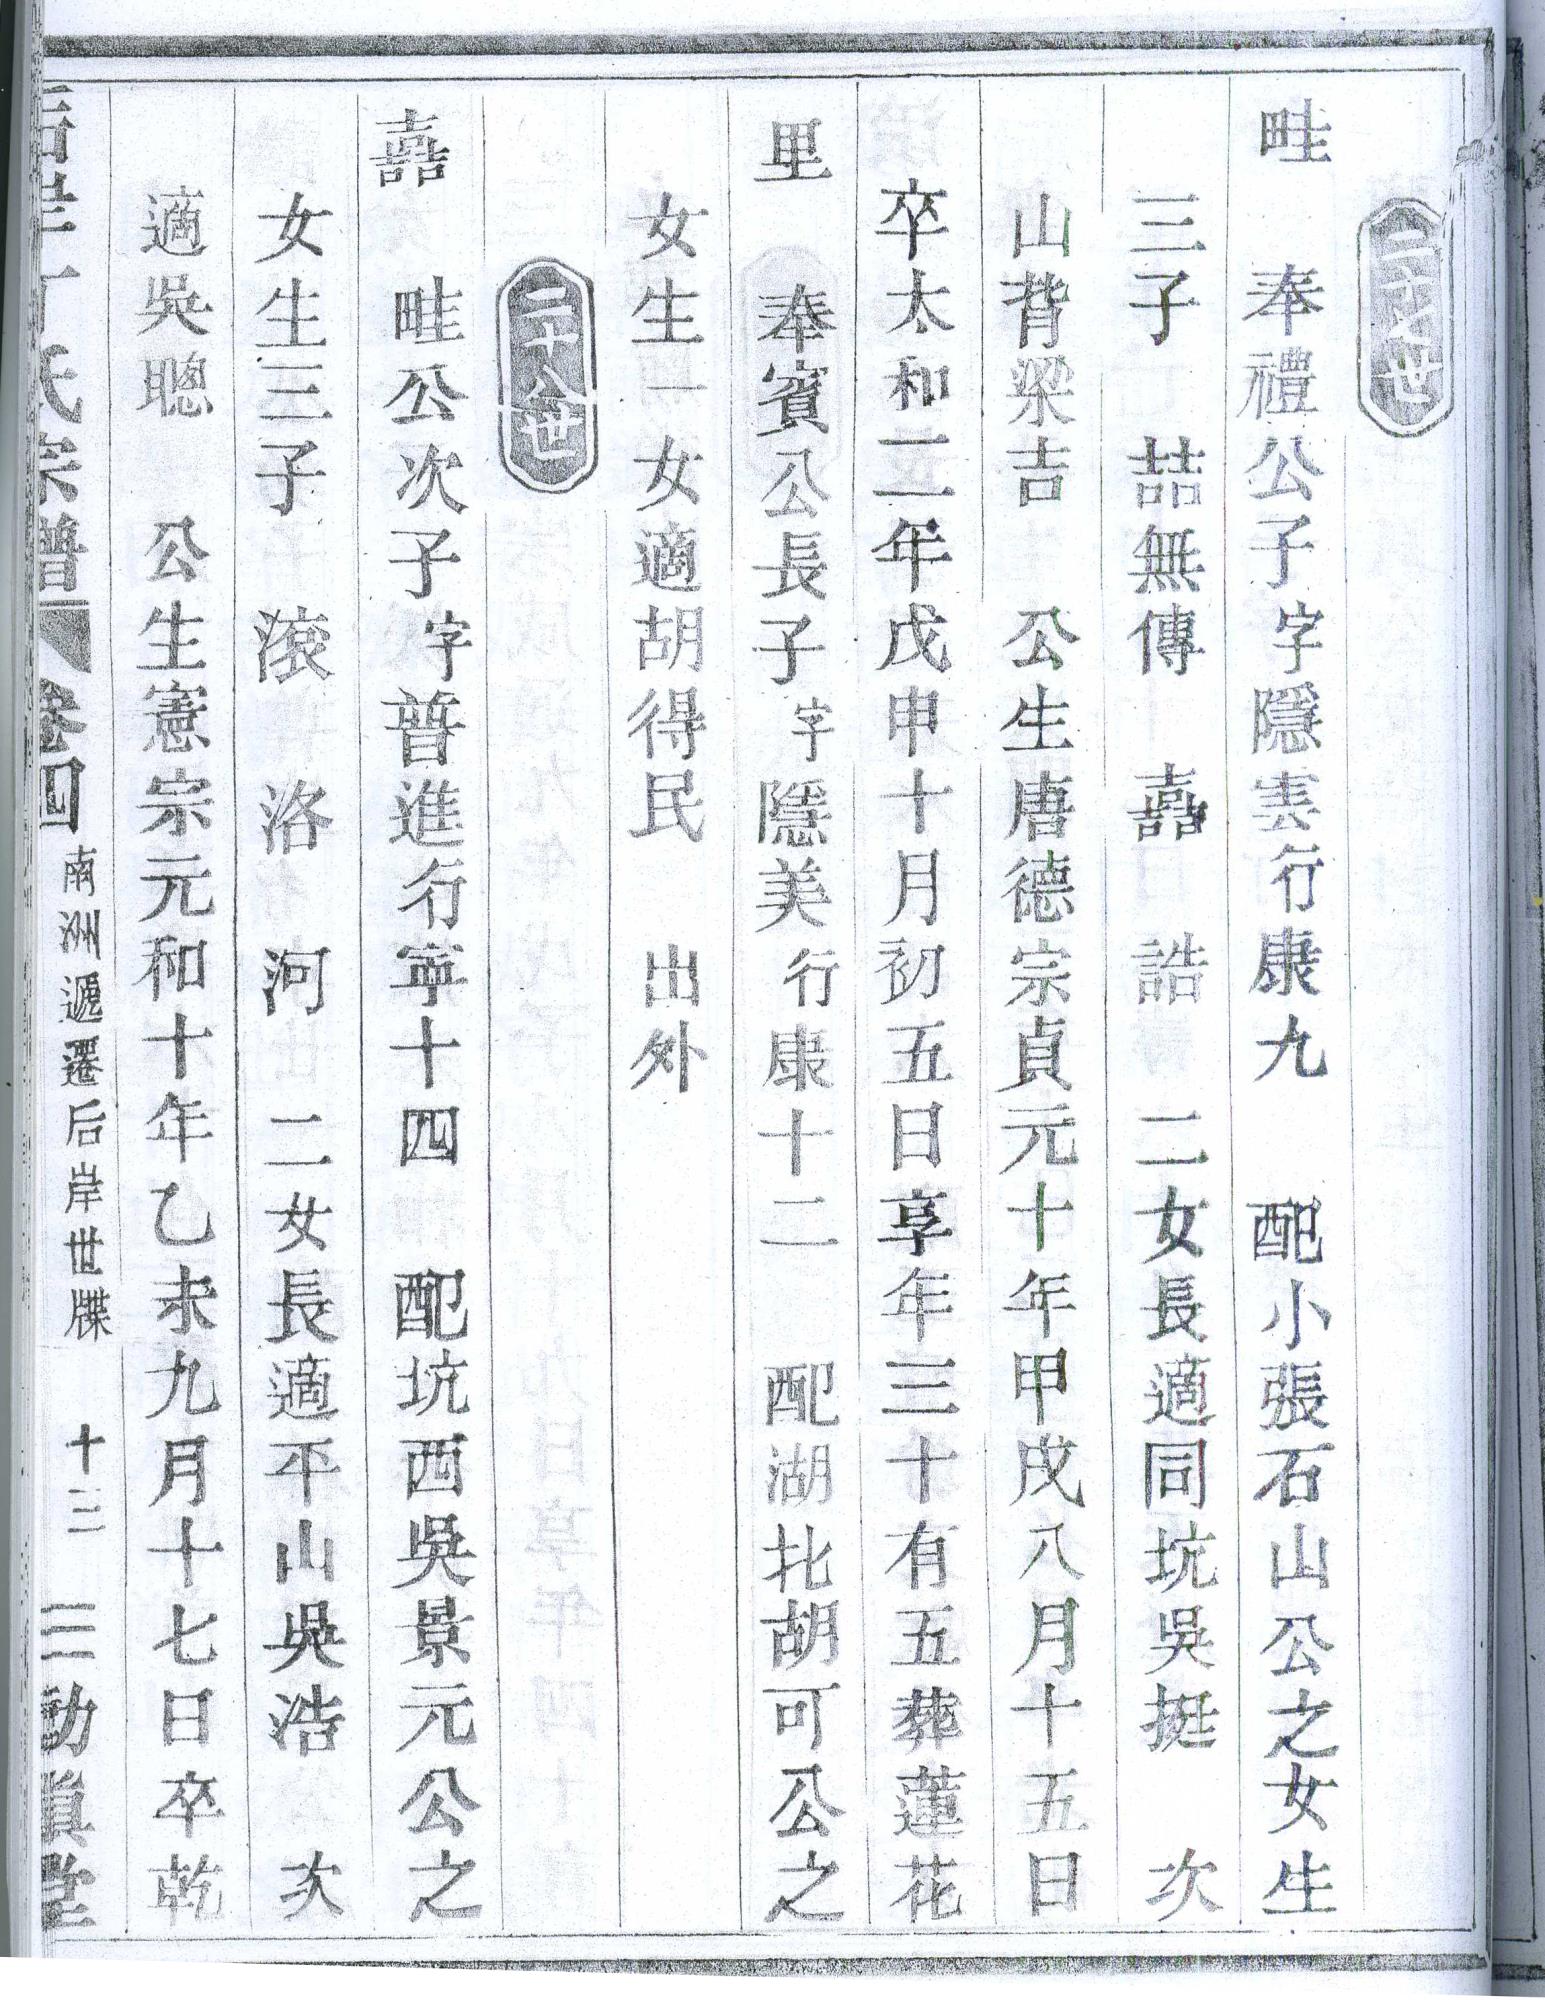 二十七世
畦　奉禮公子字隱雲行康九　配小張石山公之女生
三子　喆無傳　嚞　誥　二女長適同坑吳挺　次
山背梁吉　公生唐德宗貞元十年甲戌八月十五日
卒太和二年戊申十月初五日享年三十有五葬蓮花
里　奉賓公長子字隱美行康十二　配湖北胡可公之
女生一女適胡得民　出外
二十八世
嚞　畦公次子字普進行寧十四　配坑西吳景元公之
女生三子　滾　洛　河　二女長適平山吳浩　次
適吳聰　公生憲宗元和十年乙未九月十七日卒乾
后岸丁氏宗譜　卷四　南洲遞遷后岸世牒　十三　三勅真堂